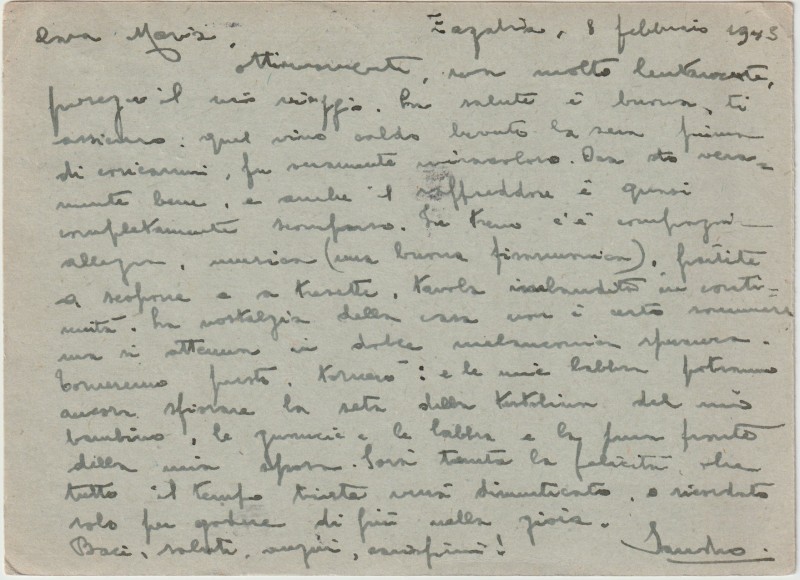 Cara Maria, Zagabria, 8 febbraio 1943
ottimamente, con molto lentamente,
proseguo il mio viaggio. La salute è buona, ti
assicuro: quel vino caldo bevuto la sera prima
di coricarmi, fu veramente miracoloso. Ora sto vera=
mente bene, e anche il raffreddore è quasi
completamente scomparso. In treno c'è compagnia
allegra, musica (una buona fisarmonica), partite
a scopone e a tresette, tavola imbandita in conti=
nuità. La nostalgia della casa non è certo
ma si attenua in dolce melanconia
Torneremo presto, tornerò: e le mie labbra potranno
ancora sfiorare la seta della testolina del mio
bambino, le guancie e le labbra e la pura fronte
della mia sposa. Sarà tanta la felicità che
tutto il tempo triste verrà dimenticato, o ricordato
solo per godere di più nella gioia.
Baci, saluti, auguri, carissimi! Sandro.